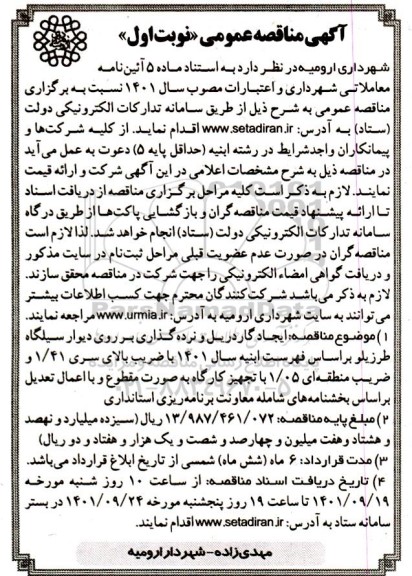 آگهی مناقصه عمومی «نوبت اول»
شهرداری ارومیه در نظر دارد به استناد ماده ۵ آئین‌نامه
معاملاتی شهرداری و اعتبارات مصوب سال ۱۴۰۱ نسبت به برگزاری
مناقصه عمومی به شرح ذیل از طریق سامانه تدارکات الکترونیکی دولت
(ستاد) به آدرس: www.setadiran.ir اقدام نماید. از کلیه شرکت‌ها و
پیمانکاران واجدشرایط در رشته ابنیه (حداقل پایه ۵) دعوت به عمل می‌آید
در مناقصه ذیل به شرح مشخصات اعلامی در این آگهی شرکت و ارائه قیمت
نمایند. لازم به ذکر است کلیه مراحل برگزاری مناقصه از دریافت اسناد
تا ارائه پیشنهاد قیمت مناقصه‌گران و بازگشایی پاکت‌ها از طریق درگاه
سامانه تدارکات الکترونیکی دولت (ستاد) انجام خواهد شد. لذا لازم است
مناقصه‌گران در صورت عدم عضویت قبلی مراحل ثبت‌نام در سایت مذکور
و دریافت گواهی امضاء الکترونیکی را جهت شرکت در مناقصه محقق سازند.
لازم به ذکر می‌باشد شرکت‌کنندگان محترم جهت کسب اطلاعات بیشتر
می‌توانند به سایت شهرداری ارومیه به آدرس: www.urmia.ir مراجعه نمایند.
۱) موضوع مناقصه: ایجاد گاردریل و نرده‌گذاری بر روی دیوار سیلگاه
طرزیلو براساس فهرست ابنیه سال ۱۴۰۱ با ضریب بالای سری ۱/۴۱ و
ضریب منطقه‌ای ۱/۰۵ با تجهیز کارگاه به صورت مقطوع و با اعمال تعدیل
براساس بخشنامه‌های شامله معاونت برنامه‌ریزی استانداری
۲) مبلغ پایه مناقصه: ۱۳/۹۸۷/۴۶۱/۰۷۲ ریال (سیزده میلیارد و نهصد
و هشتاد و هفت میلیون و چهارصد و شصت و یک هزار و هفتاد و دو ریال)
۳) مدت قرارداد: ۶ ماه (شش ماه) شمسی از تاریخ ابلاغ قرارداد می‌باشد.
۴) تاریخ دریافت اسناد مناقصه: از ساعت ۱۰ روز شنبه مورخه
۱۴۰۱/۰۹/۱۹ تا ساعت ۱۹ روز پنجشنبه مورخه ۱۴۰۱/۰۹/۲۴ در بستر
سامانه ستاد به آدرس: www.setadiran.ir اقدام نمایند.
مهدی‌زاده - شهردار ارومیه